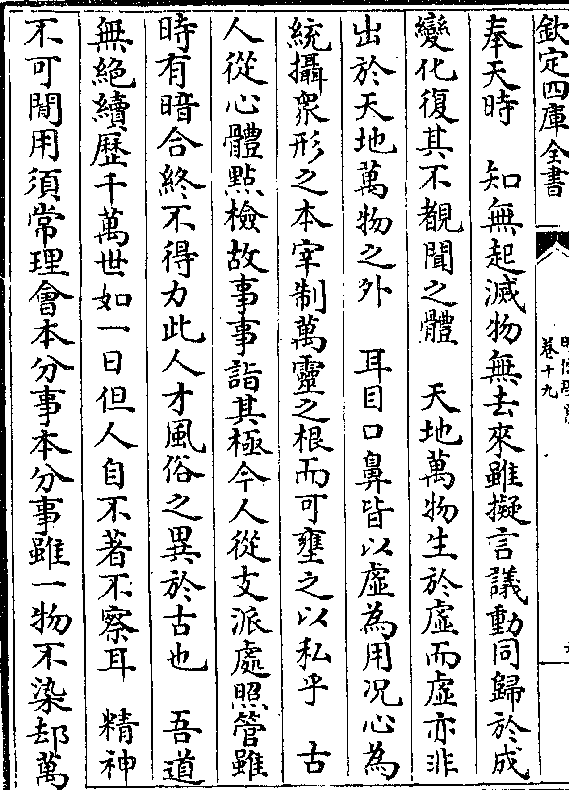 欽定四庫全書
卷十九
奉天時　知無起滅物無去來雖擬言議動同歸於成
變化復其不覩聞之體　天地萬物生於虛而虛亦非
出於天地萬物之外　耳目口鼻皆以虛為用况心為
統攝衆形之本宰制萬靈之根而可壅之以私乎　古
人從心體點檢故事事詣其極今人從支派處照管雖
時有暗合終不得力此人才風俗之異於古也　吾道
無絶續歴千萬世如一日但人自不著不察耳　精神
不可閒用須常理會本分事本分事雖一物不染却萬